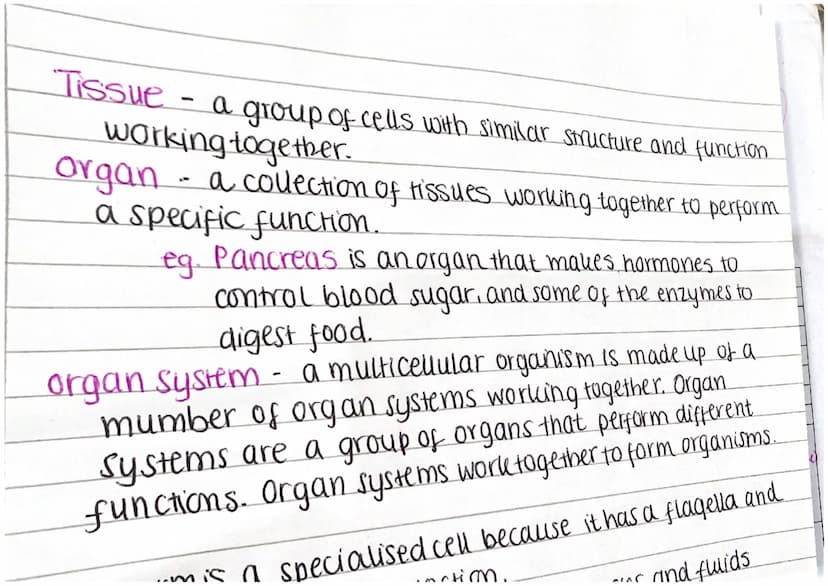 Tissue - a group of cells with similar structure and function
working together.
organ - a collection of tissues working together to perform
a specific function.
eg. Pancreas is an organ that makes hormones to
control blood sugar, and some of the enzymes to
digest food.
organ system - a multicellular organism is made up of a
mumber of organ systems working together. Organ
systems are a group of organs that perform different
functions. Organ systems work together to form organisms.
is a specialised cell because it has a flagella and
and fluids